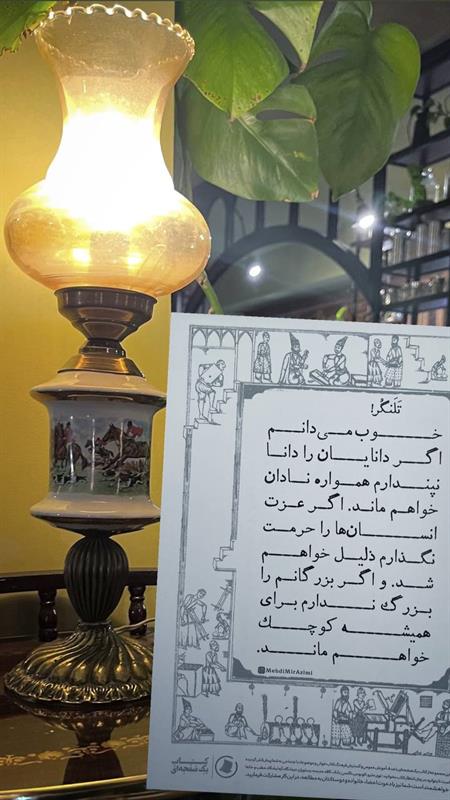 تَلَنگُر!
خوب می‌دانم
اگر دانایان را دانا
نپندارم همواره نادان
خواهم ماند. اگر عزت
انسان‌ها را حرمت
نگذارم ذلیل خواهم
شد. و اگر بزرگانم را
بزرگ ندارم برای
همیشه کوچک
خواهم ماند.
MehdiMirAzimi
کتاب
یک صفحه‌ای